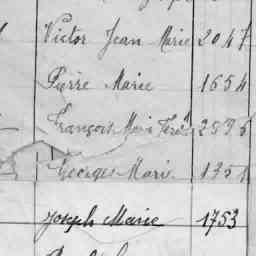 Victor Jean Marie 2047
Pierre Marie 1654
François Marie
Georges Marie
Joseph Marie 1753